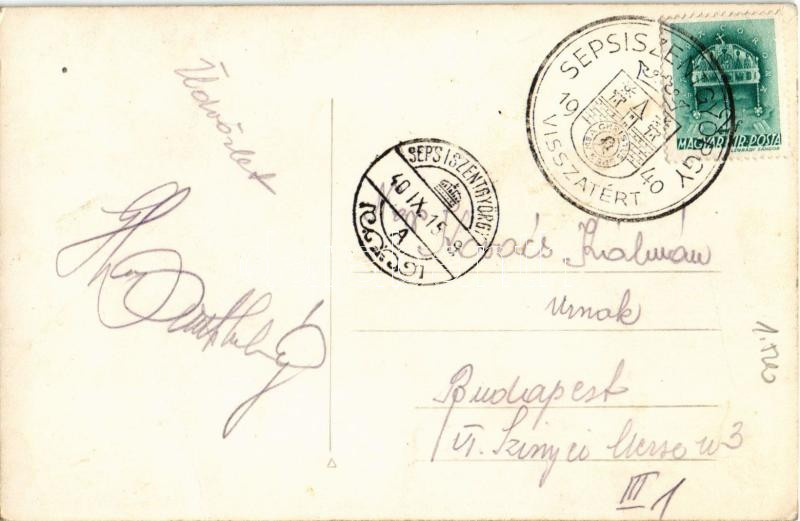 Üdvözlet
SEPSISZENTGYÖRGY
VISSZATÉRT
1940
MAGYAR KIR. POSTA
SEPSISZENTGYÖRGY
40 IX. 15
A
Kovács Kálmán
urnak
Budapest
VI. Szinyei Merse u 3
III 1